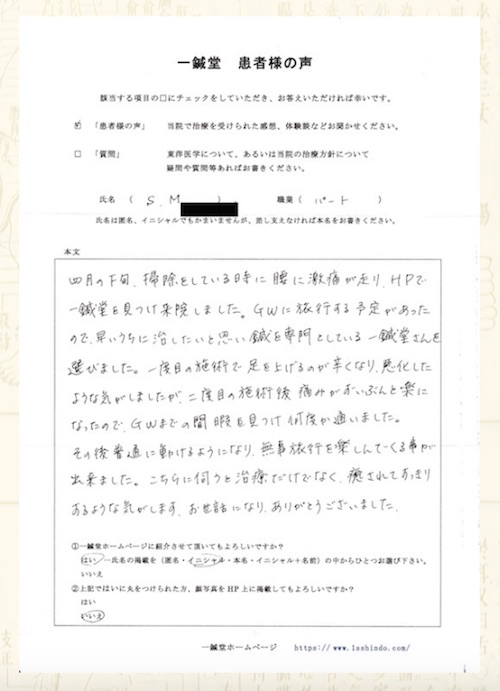 一鍼堂 患者様の声
該当する項目の□にチェックをしていただき、お答えいただければ幸いです。
☑ 「患者様の声」 当院で治療を受けられた感想、体験談などお聞かせください。
□ 「質問」 東洋医学について、あるいは当院の治療方針について
疑問や質問等あればお書きください。
氏名 ( S. M ) 職業 ( パート )
氏名は匿名、イニシャルでもかまいませんが、差し支えなければ本名をお書きください。
本文
四月の下旬、掃除をしている時に腰に激痛が走り、HPで
一鍼堂を見つけ来院しました。GWに旅行する予定があった
ので、早いうちに治したいと思い鍼を専門としている一鍼堂さんを
選びました。一度目の施術で足を上げるのが辛くなり、悪化した
ような気がしましたが、二度目の施術後痛みがずいぶんと楽に
なったので、GWまでの間暇を見つけ何度か通いました。
その後普通に動けるようになり、無事旅行を楽しんでくる事が
出来ました。こちらに伺うと治療だけでなく、癒されてすっきり
するような気がします。お世話になり、ありがとうございました。
①一鍼堂ホームページに紹介させて頂いてもよろしいですか？
はい―氏名の掲載を（匿名・イニシャル・本名・イニシャル＋名前）の中からひとつお選び下さい。
いいえ
②上記ではいに丸をつけられた方、顔写真をHP上に掲載してもよろしいですか？
はい
いいえ
一鍼堂ホームページ https://www.1sshindo.com/